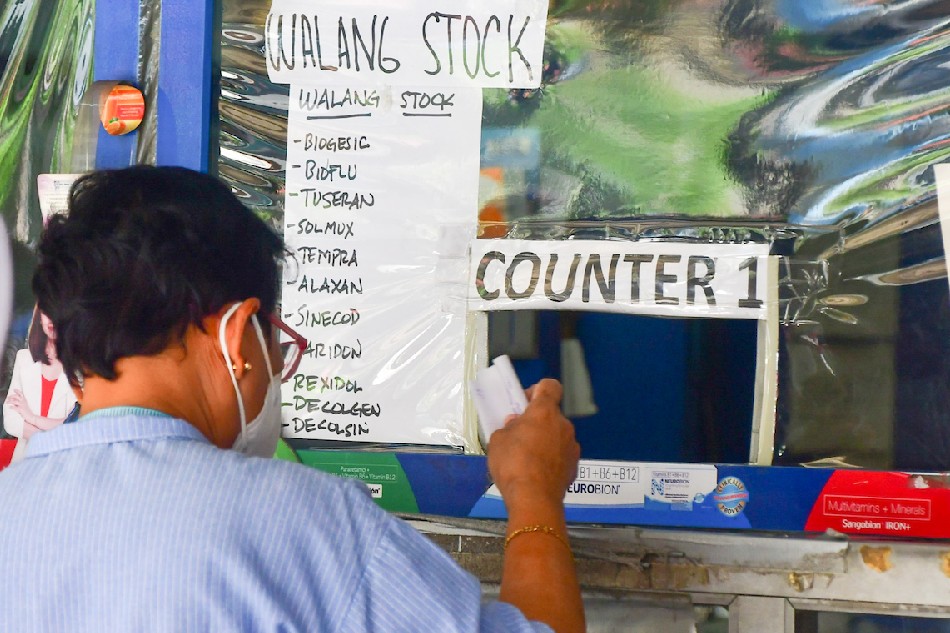 WALANG STOCK
WALANG STOCK
- BIOGESIC
- BIOFLU
- TUSERAN
- SOLMUX
TEMPRA
ALAXAN
- SINECOD
ARIDON
- REXIDOL
- DECOLGEN
- DECOLSIN
COUNTER 1
B1+B6+B12
EUROBION
Multivitamins + Minerals
Sangobion IRON+